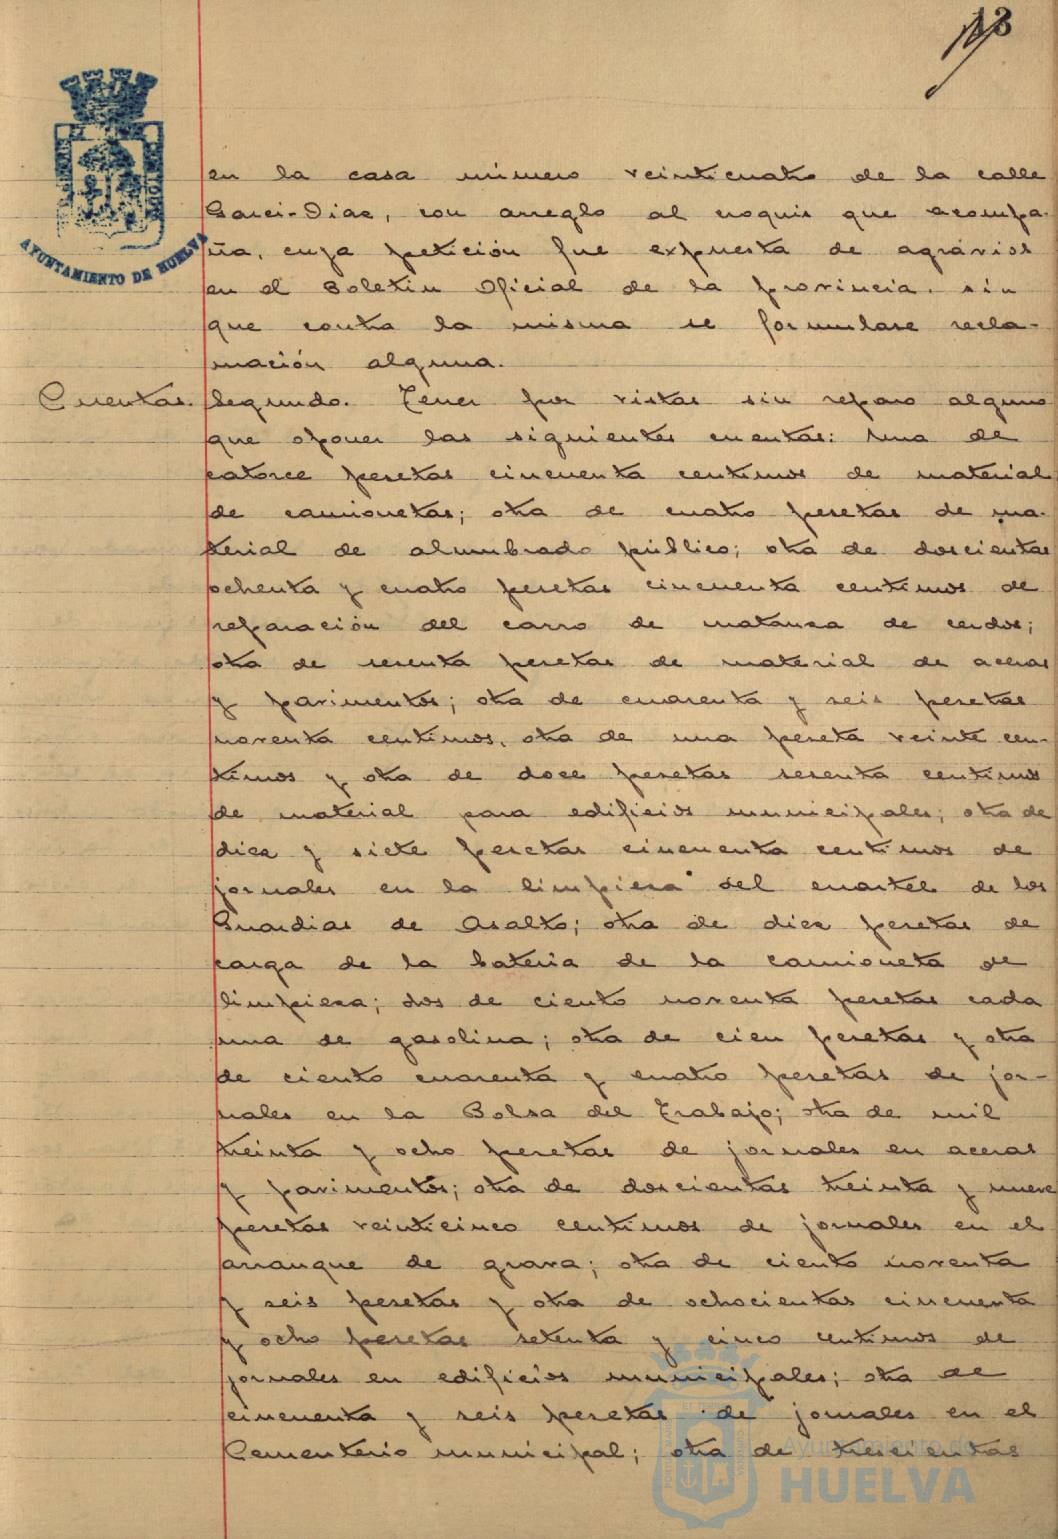 en la casa número veinticuatro de la calle
Garci-Diaz, con arreglo al croquis que acompa-
ña, cuya petición fue expuesta de agravios
en el Boletin Oficial de la provincia, sin
que contra la misma se formulase recla-
mación alguna.
Cuentas. Segundo. Tener por vistas sin reparo alguno
que oponer las siguientes cuentas: una de
catorce pesetas cincuenta centimos de material
de camionetas; otra de cuatro pesetas de ma-
terial de alumbrado público; otra de doscientas
ochenta y cuatro pesetas cincuenta centimos de
reparación del carro de matanza de cerdos;
otra de sesenta pesetas de material de aceras
y pavimentos; otra de cuarenta y seis pesetas
noventa centimos, otra de una peseta veinte cen-
timos y otra de doce pesetas sesenta centimos
de material para edificios municipales; otra de
diez y siete pesetas cincuenta centimos de
jornales en la limpieza del cuartel de los
Guardias de Asalto; otra de diez pesetas de
carga de la bateria de la camioneta de
limpieza; dos de ciento noventa pesetas cada
una de gasolina; otra de cien pesetas y otra
de ciento cuarenta y cuatro pesetas de jor-
nales en la Bolsa del Trabajo; otra de mil
treinta y ocho pesetas de jornales en aceras
y pavimentos; otra de doscientas treinta y nueve
pesetas veinticinco centimos de jornales en el
arranque de grava; otra de ciento noventa
y seis pesetas y otra de ochocientas cincuenta
y ocho pesetas setenta y cinco centimos de
jornales en edificios municipales; otra de
cincuenta y seis pesetas de jornales en el
Cementerio municipal; otra de trescientas
AYUNTAMIENTO DE HUELVA
Ayuntamiento de
HUELVA